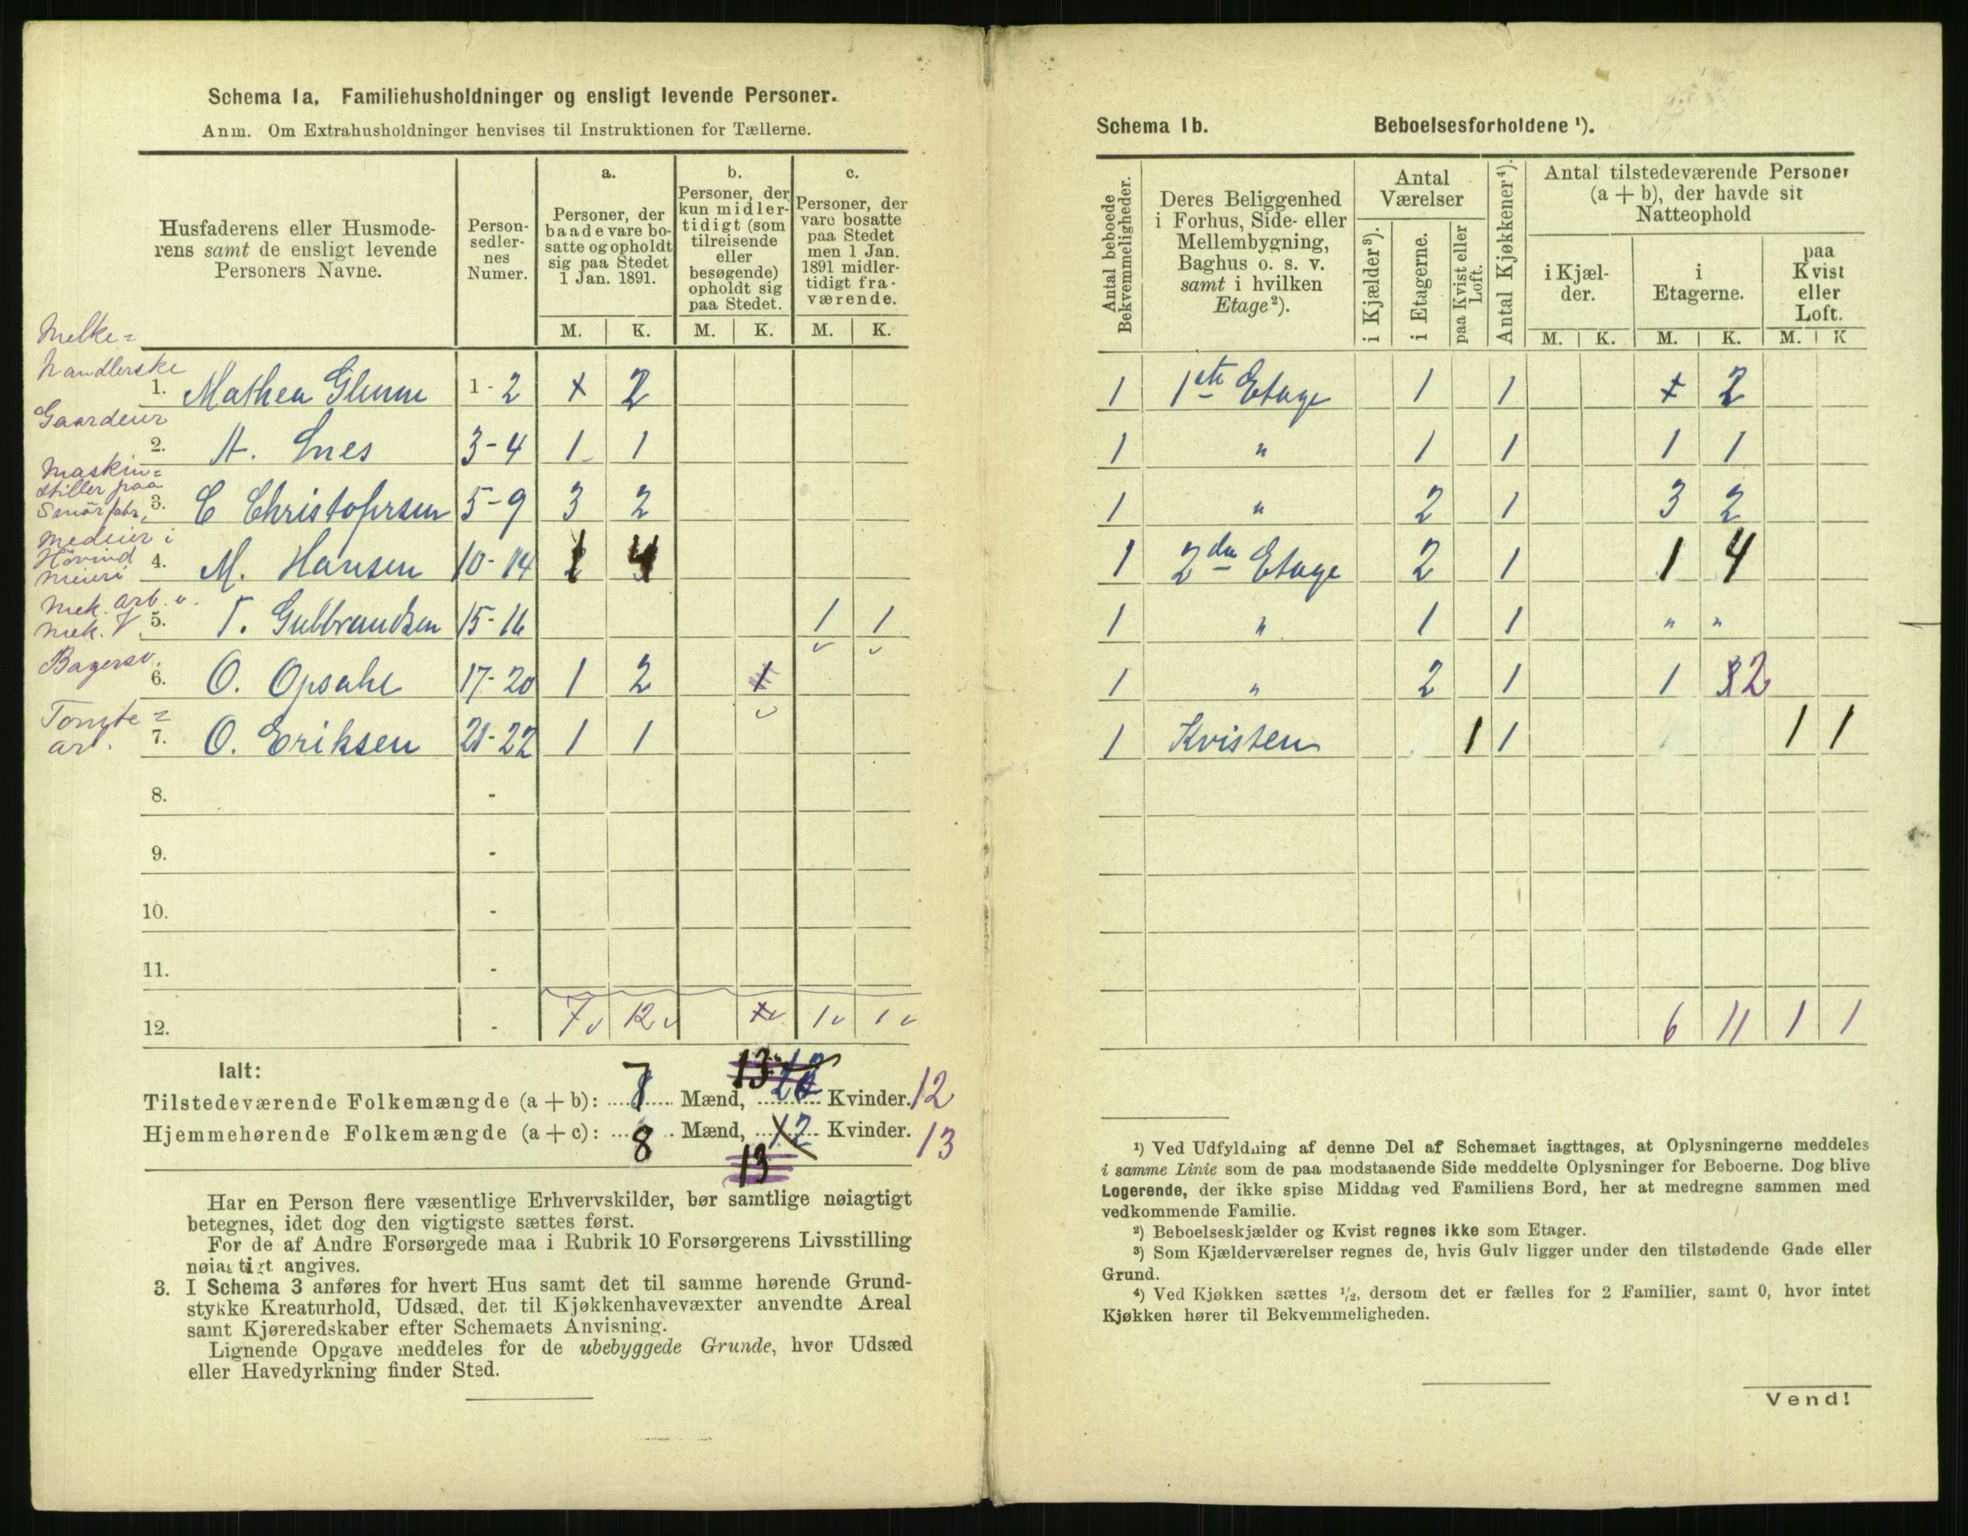 Schema 1a. Familiehusholdninger og ensligt levende Personer.
Anm. Om Extrahusholdninger henvises til Instruktionen for Tællerne.
Husfaderens eller Husmoderens samt de ensligt levende Personers Navne.
Personsedlernes Numer.
a. Personer, der baade vare bosatte og opholdt sig paa Stedet 1 Jan. 1891.
b. Personer, der kun midlertidigt (som tilreisende eller besøgende) opholdt sig paa Stedet.
c. Personer, der vare bosatte paa Stedet men 1 Jan. 1891 midlertidigt fraværende.
M. K. M. K. M. K.
Melke=
handlerske
1. Mathea Glenne 1-2 x 2
Gaardeier
2. A. Enes 3-4 1 1
Maskin=
stiller paa
Smörfabr.
3. C Christophersen 5-9 3 2
Medeier i
Hövind
Meieri
4. M. Hansen 10-14 1 4
Mek. arb. v.
Mek. V.
5. T. Gulbrandsen 15-16 1 1
Bagersv.
6. O. Opsahl 17-20 1 2 1
Tomte=
arb.
7. O. Eriksen 21-22 1 1
8. -
9. -
10. -
11. -
12. - 7 v 12 v x v 1 v 1 v
Ialt:
Tilstedeværende Folkemængde (a + b): 7 Mænd, 13 Kvinder. 12
Hjemmehørende Folkemængde (a + c): 8 Mænd, 12 Kvinder. 13
13
Har en Person flere væsentlige Erhvervskilder, bør samtlige nøiagtigt
betegnes, idet dog den vigtigste sættes først.
For de af Andre Forsørgede maa i Rubrik 10 Forsørgerens Livsstilling
nøiagtigt angives.
3. I Schema 3 anføres for hvert Hus samt det til samme hørende Grund-
stykke Kreaturhold, Udsæd, det til Kjøkkenhavevæxter anvendte Areal
samt Kjøreredskaber efter Schemaets Anvisning.
Lignende Opgave meddeles for de ubebyggede Grunde, hvor Udsæd
eller Havedyrkning finder Sted.
Schema 1b. Beboelsesforholdene ¹).
Antal beboede Bekvemmeligheder.
Deres Beliggenhed i Forhus, Side- eller Mellembygning, Baghus o. s. v. samt i hvilken Etage²).
Antal Værelser
i Kjælder³).
i Etagerne.
paa Kvist eller Loft.
Antal Kjøkkener⁴).
Antal tilstedeværende Personer (a + b), der havde sit Natteophold
i Kjælder. i Etagerne. paa Kvist eller Loft.
M. K. M. K. M. K
1 1ste Etage 1 1 x 2
1 " 1 1 1 1
1 " 2 1 3 2
1 2den Etage 2 1 1 4
1 " 1 1 " "
1 " 2 1 1 32
1 Kvisten 1 1 1 1
6 11 1 1
¹) Ved Udfyldning af denne Del af Schemaet iagttages, at Oplysningerne meddeles
i samme Linie som de paa modstaaende Side meddelte Oplysninger for Beboerne. Dog blive
Logerende, der ikke spise Middag ved Familiens Bord, her at medregne sammen med
vedkommende Familie.
²) Beboelseskjælder og Kvist regnes ikke som Etager.
³) Som Kjælderværelser regnes de, hvis Gulv ligger under den tilstødende Gade eller
Grund.
⁴) Ved Kjøkken sættes ½, dersom det er fælles for 2 Familier, samt 0, hvor intet
Kjøkken hører til Bekvemmeligheden.
Vend!